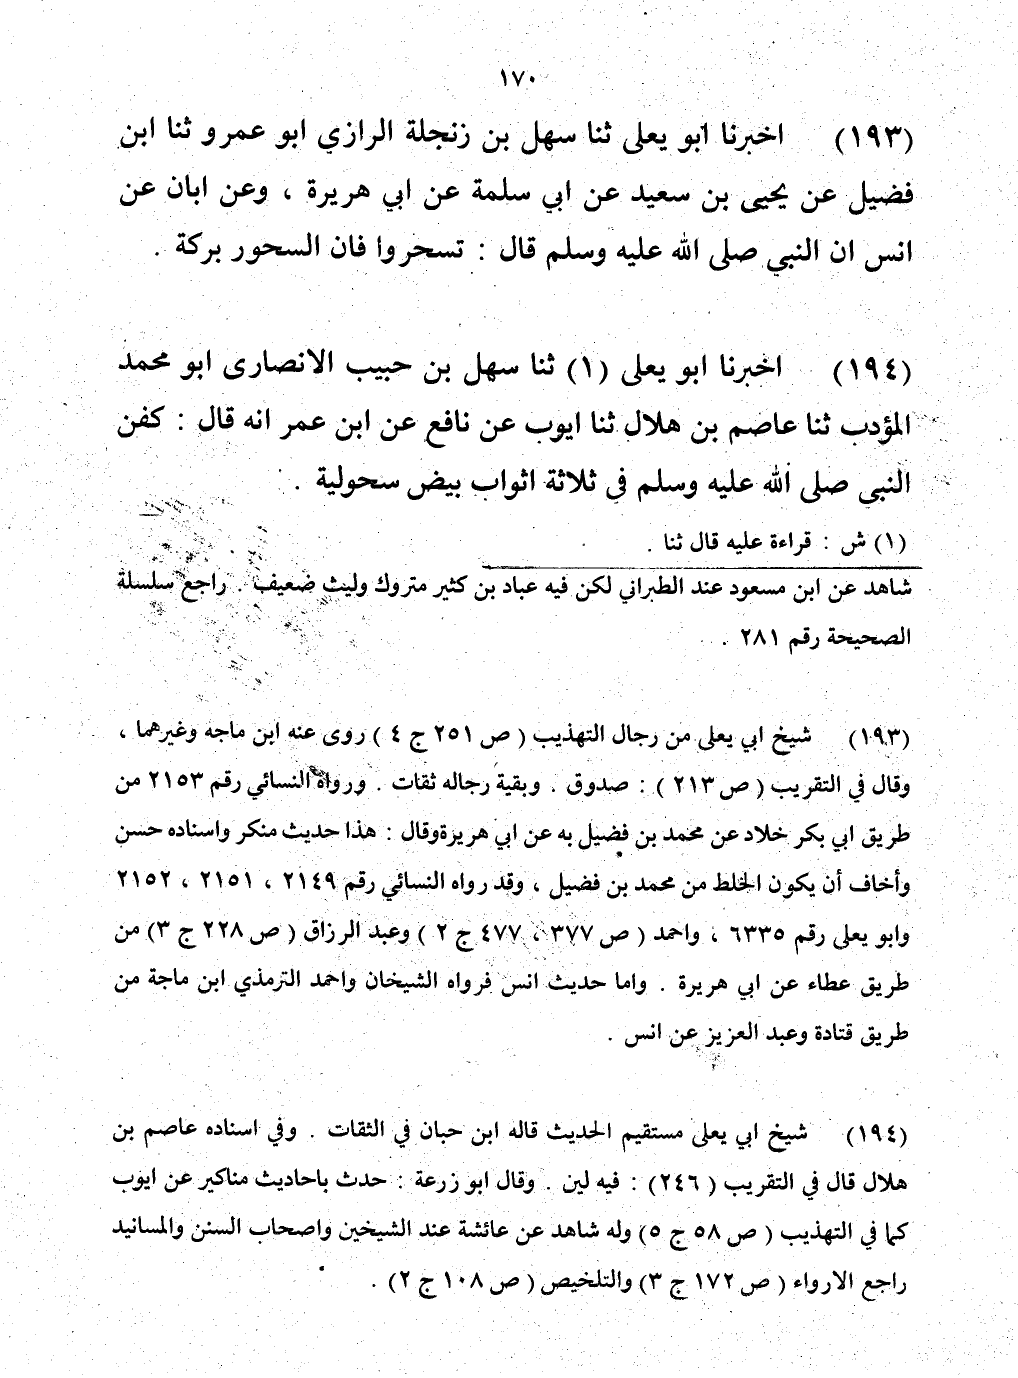 ١٧٠
(١٩٣) اخبرنا ابو يعلى ثنا سهل بن زنجلة الرازي ابو عمرو ثنا ابن
فضيل عن يحيى بن سعيد عن ابي سلمة عن ابي هريرة ، وعن ابان عن
انس ان النبي صلى الله عليه وسلم قال : تسحروا فان السحور بركة .
(١٩٤) اخبرنا ابو يعلى (١) ثنا سهل بن حبيب الانصارى ابو محمد
المؤدب ثنا عاصم بن هلال ثنا ايوب عن نافع عن ابن عمر انه قال : كفن
النبي صلى الله عليه وسلم في ثلاثة اثواب بيض سحولية .
(١) ش : قراءة عليه قال ثنا .
شاهد عن ابن مسعود عند الطبراني لكن فيه عباد بن كثير متروك وليث ضعيف . راجع سلسلة
الصحيحة رقم ٢٨١ .
(١٩٣) شيخ ابي يعلى من رجال التهذيب ( ص ٢٥١ ج ٤ ) روى عنه ابن ماجه وغيرهما ،
وقال في التقريب ( ص ٢١٣ ) : صدوق . وبقية رجاله ثقات . ورواه النسائي رقم ٢١٥٣ من
طريق ابي بكر خلاد عن محمد بن فضيل به عن ابي هريرةوقال : هذا حديث منكر واسناده حسن
وأخاف أن يكون الخلط من محمد بن فضيل ، وقد رواه النسائي رقم ٢١٤٩ ، ٢١٥١ ، ٢١٥٢
وابو يعلى رقم ٦٣٣٥ ، واحمد ( ص ٣٧٧ ، ٤٧٧ ج ٢ ) وعبد الرزاق ( ص ٢٢٨ ج ٣) من
طريق عطاء عن ابي هريرة . واما حديث انس فرواه الشيخان واحمد الترمذي ابن ماجة من
طريق قتادة وعبد العزيز عن انس .
(١٩٤) شيخ ابي يعلى مستقيم الحديث قاله ابن حبان في الثقات . وفي اسناده عاصم بن
هلال قال في التقريب ( ٢٤٦) : فيه لين . وقال ابو زرعة : حدث باحاديث مناكير عن ايوب
كما في التهذيب ( ص ٥٨ ج ٥) وله شاهد عن عائشة عند الشيخين واصحاب السنن والمسانيد
راجع الارواء ( ص ١٧٢ ج ٣) والتلخيص ( ص ١٠٨ ج ٢) .